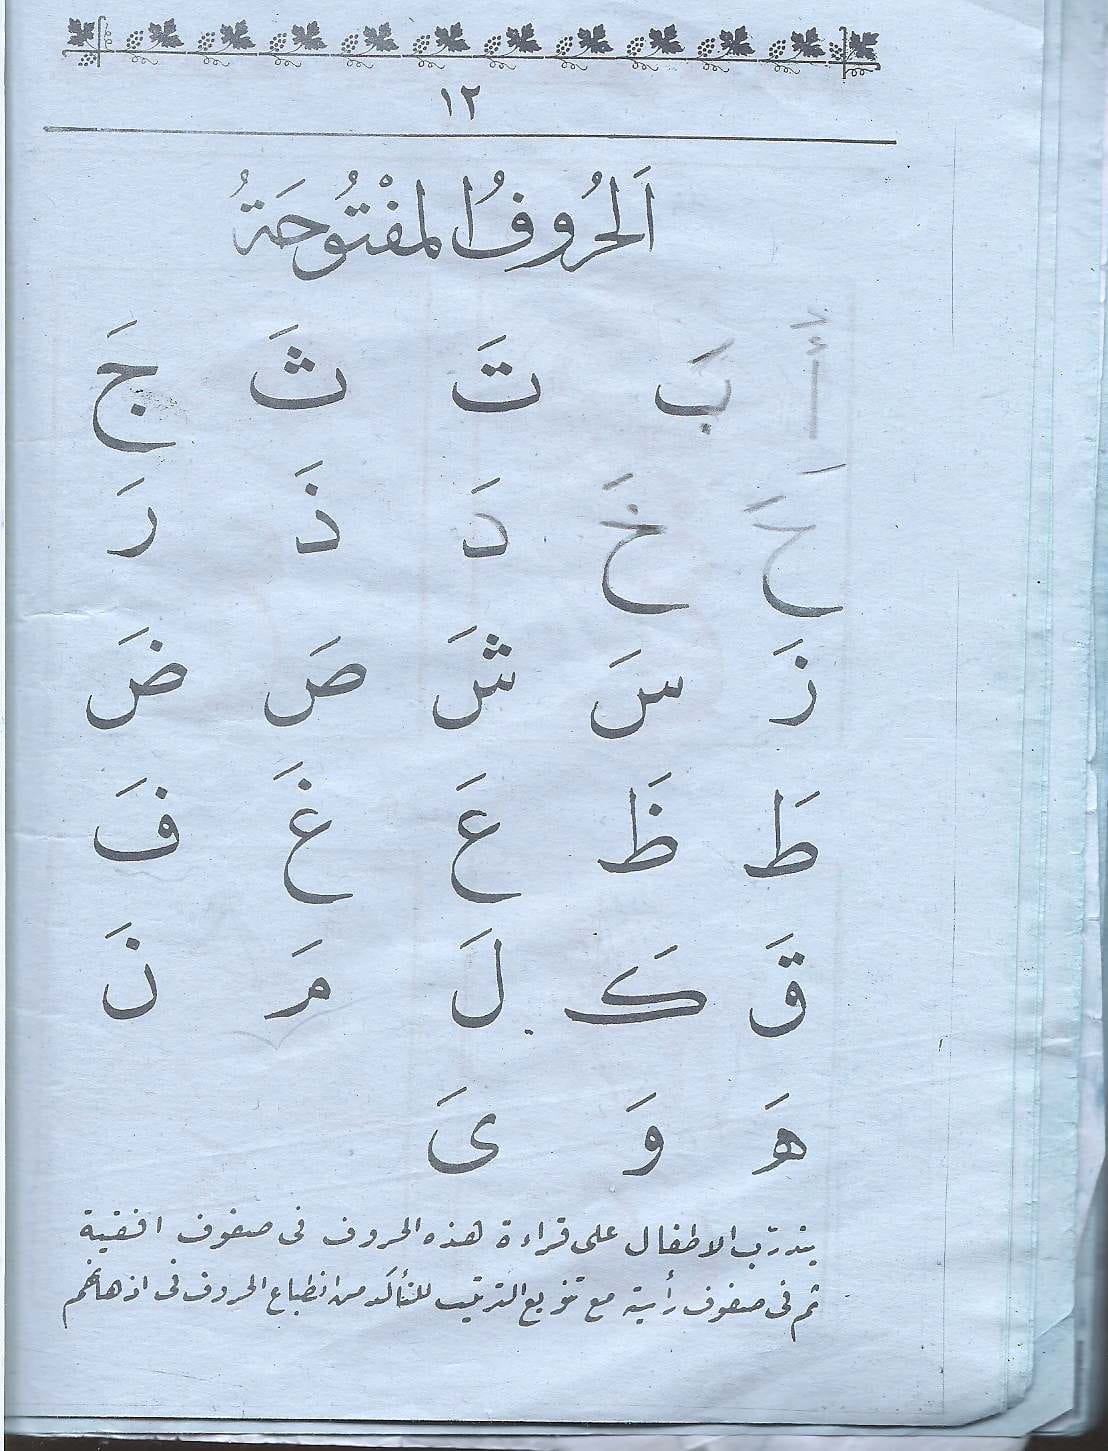 ١٢
اَلْحُرُوفُ الْمَفْتُوحَةُ
أَ بَ تَ ثَ جَ
حَ خَ دَ ذَ رَ
زَ سَ شَ صَ ضَ
طَ ظَ عَ غَ فَ
قَ كَ لَ مَ نَ
هَ وَ ىَ
يتدرّب الاطفال على قراءة هذه الحروف فى صفوف افقية
ثم فى صفوف رأسية مع تنويع الترتيب للتأكد من انطباع الحروف فى اذهانهم